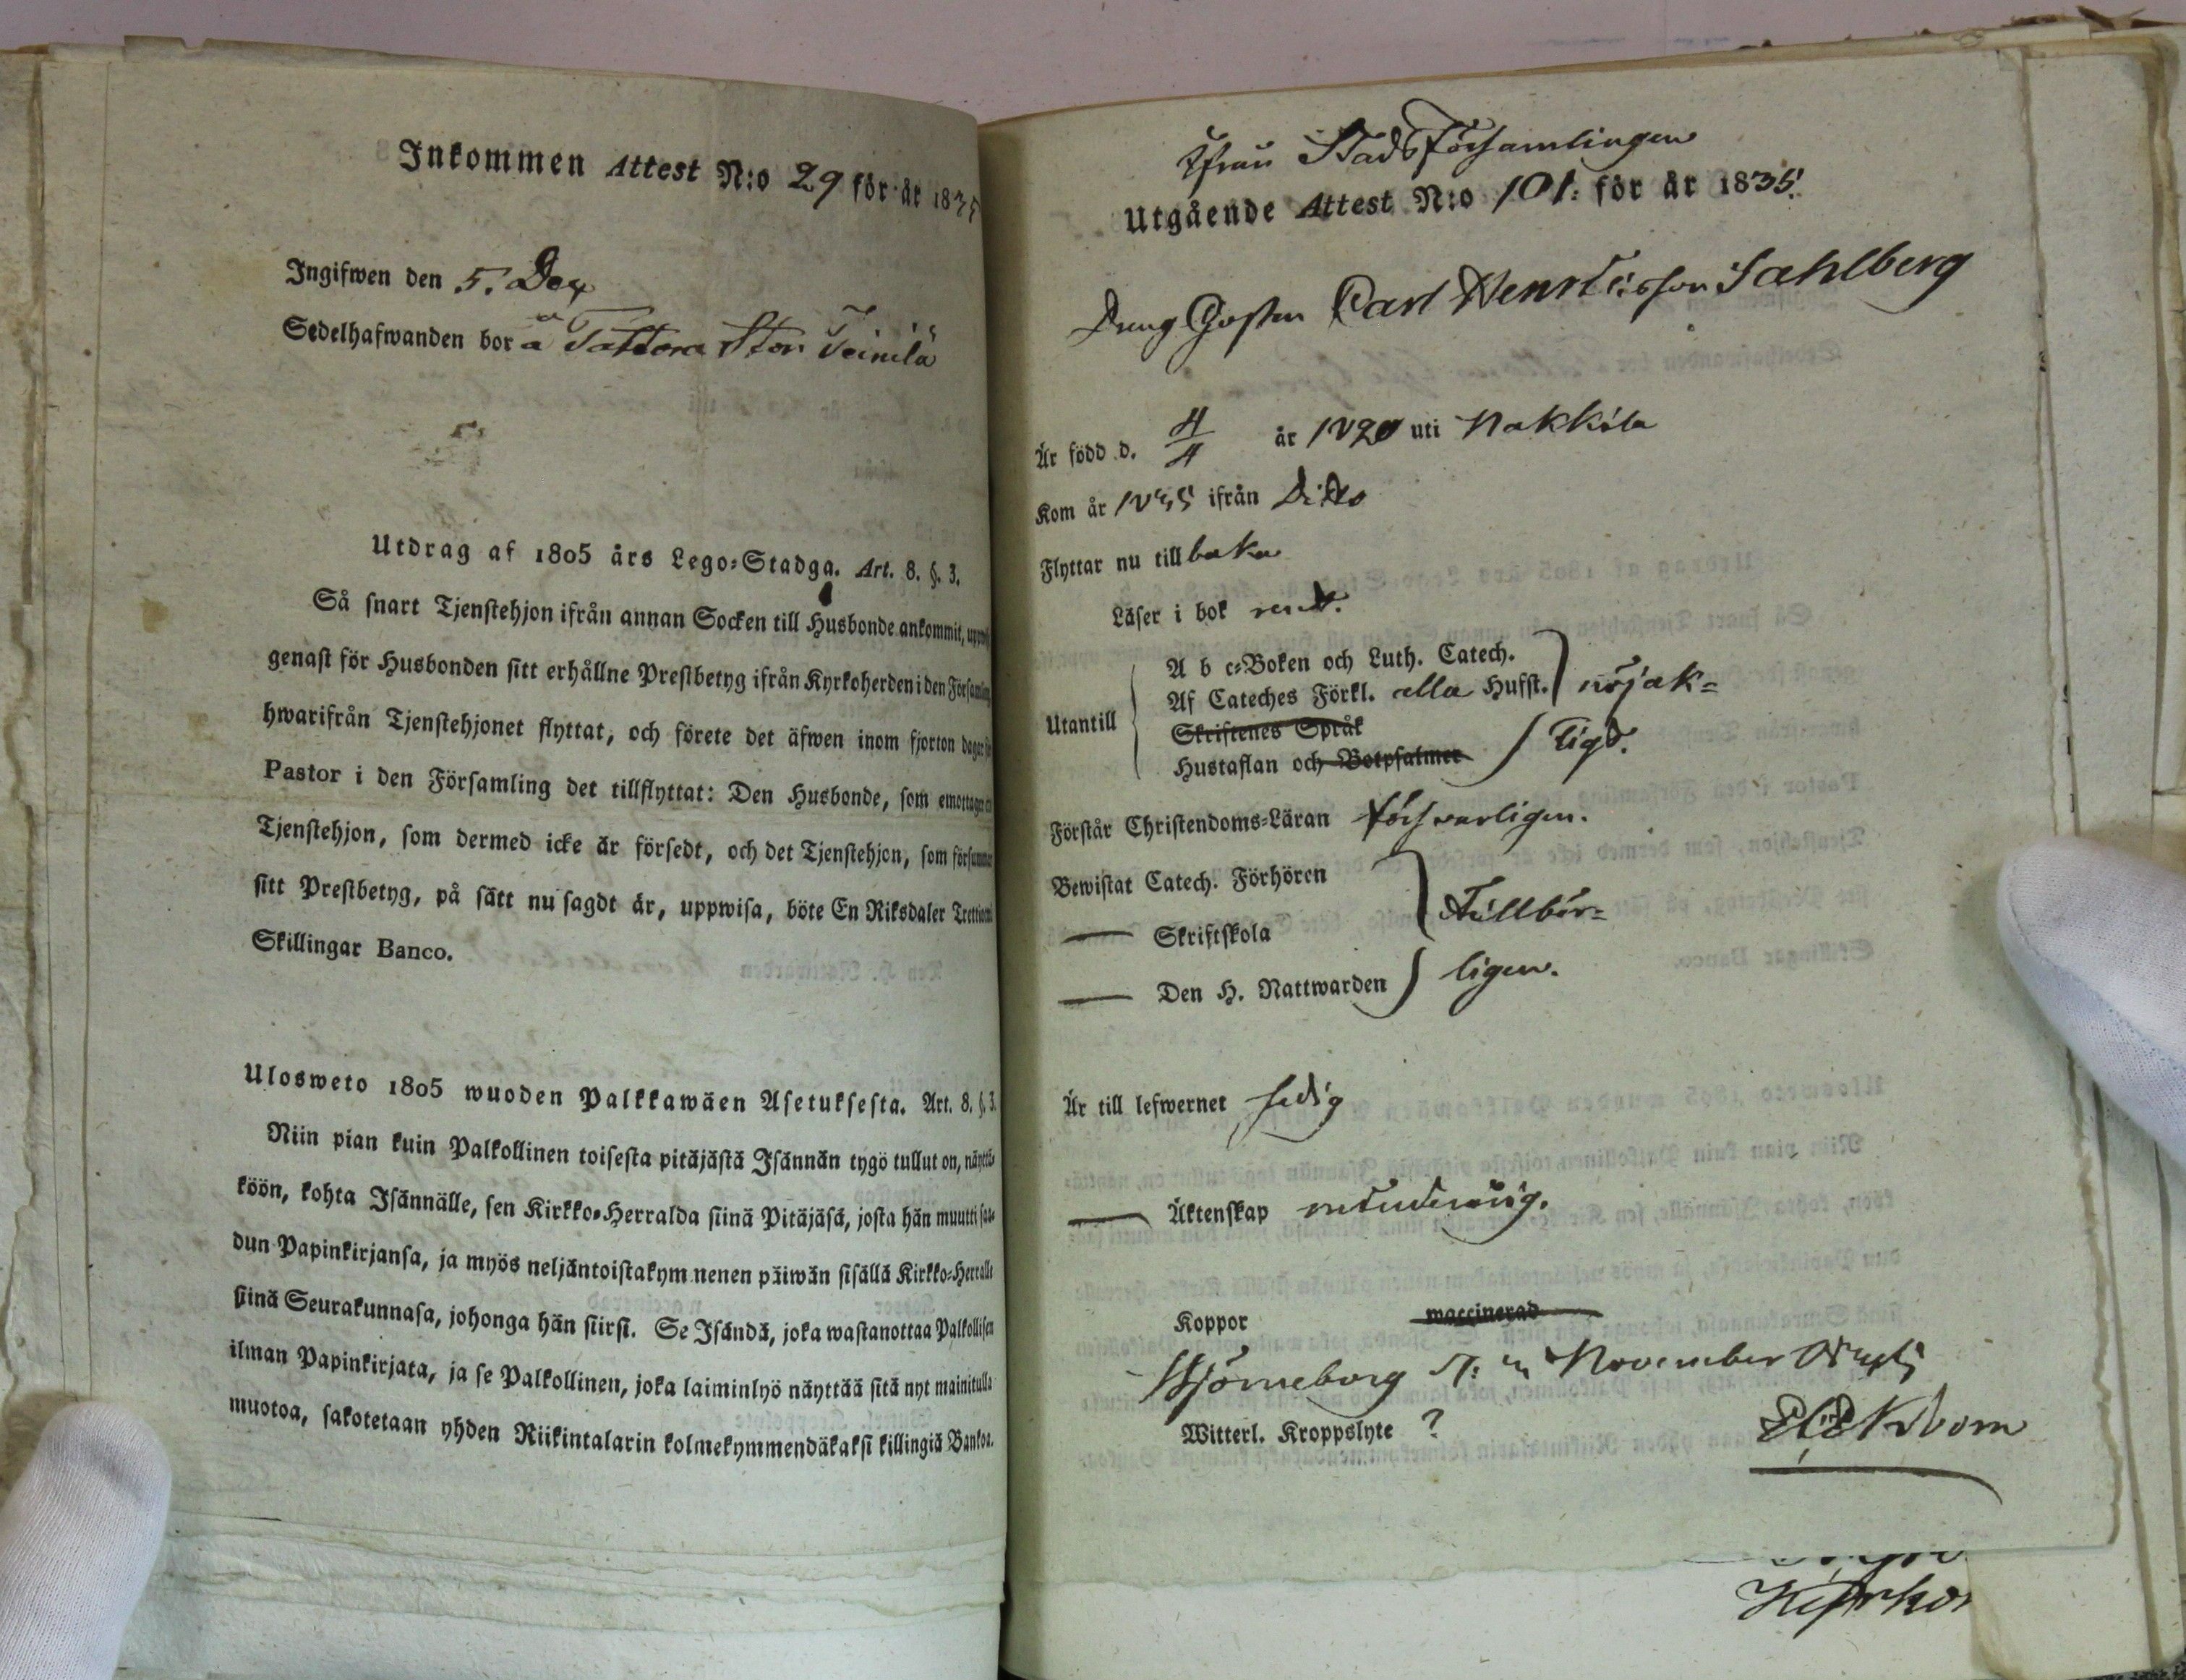 Inkommen Attest N:o 29 för år 1835
Ingifwen den 5. Dec
Sedelhafwanden bor å Tattara Stor Teinilä
Utdrag af 1805 års Lego-Stadga. Art. 8. §. 3.
Så snart Tjenstehjon ifrån annan Socken till Husbonde ankommit,
genast för Husbonden sitt erhållne Prestbetyg ifrån Kyrkoherden i den
hwarifrån Tjenstehjonet flyttat, och förete det äfwen inom fjorton dagar
Pastor i den Församling det tillflyttat: Den Husbonde, som emottager
Tjenstehjon, som dermed icke är försedt, och det Tjenstehjon, som försummar
sitt Prestbetyg, på sätt nu sagdt är, uppwisa, böte En Riksdaler
Skillingar Banco.
Ulosweto 1805 wuoden Palkkawäen Asetuksesta. Art. 8. §. 3.
Niin pian kuin Palkollinen toisesta pitäjästä Isännän tygö tullut on, näyttä-
köön, kohta Isännälle, sen Kirkko-Herralda siinä Pitäjäsä, josta hän muutti saa-
dun Papinkirjansa, ja myös neljäntoistakymnenen päiwän sisällä Kirkko-Herralle
siinä Seurakunnasa, johonga hän siirsi. Se Isändä, joka wastanottaa Palkollisen
ilman Papinkirjata, ja se Palkollinen, joka laiminlyö näyttää sitä nyt mainitulla
muotoa, sakotetaan yhden Riikintalarin kolmekymmendäkaksi killingiä Bankoa.
Ifrån Stads Församlingen
Utgående Attest N:o 101: för år 1835.
Dreng Gossen Carl Henriksson Sahlberg
Är född d. 4/4 år 1820 uti Nakkila
Kom år 1835 ifrån Ditto
Flyttar nu tillbaka
Läser i bok rent.
Utantill
A b c-Boken och Luth. Catech.
Af Cateches Förkl. alla Hufst. nöjak-
Skriftenes Språk
Hustaflan och Botpsalmer ligt.
Förstår Christendoms-Läran försvarligen.
Bewistat Catech. Förhören
— Skriftskola Tillbör-
— Den H. Nattwarden ligen.
Är till lefwernet sedig
— Äktenskap
Koppor waccinerad
Björneborg November
Witterl. Kroppslyte ?